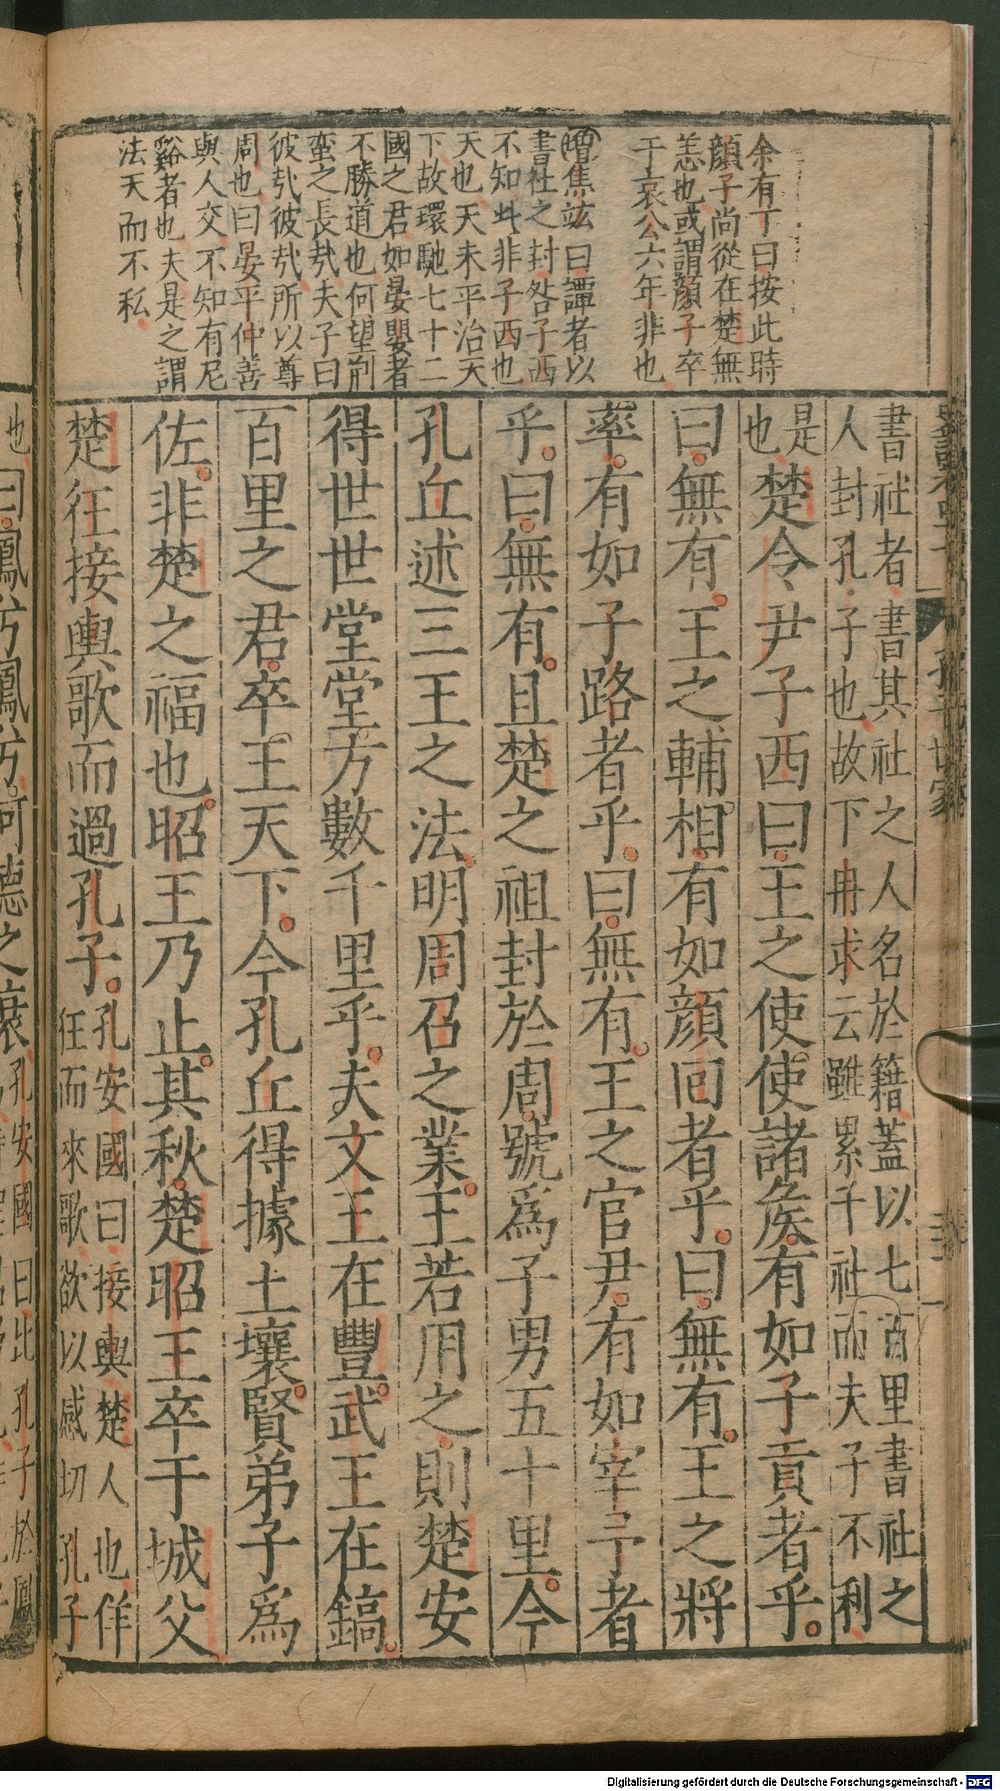 余有丁曰按此時
顏子尚從在楚無
恙也或謂顏子卒
于哀公六年非也
增焦竑曰譚者以
書社之封咎子西
不知此非子西也
天也天未平治天
下故環馳七十二
國之君如晏嬰者
不勝道也何望荊
蠻之長哉夫子曰
彼哉彼哉所以尊
周也曰晏平仲善
與人交不知有尼
谿者也夫是之謂
法天而不私
書社者書其社之人名於籍蓋以七百里書社之
人封孔子也故下冉求云雖累千社而夫子不利
是
也楚令尹子西曰王之使使諸侯有如子貢者乎
曰無有王之輔相有如顏回者乎曰無有王之將
率有如子路者乎曰無有王之官尹有如宰予者
乎曰無有且楚之祖封於周號爲子男五十里今
孔丘述三王之法明周召之業王若用之則楚安
得世世堂堂方數千里乎夫文王在豐武王在鎬
百里之君卒王天下今孔丘得據土壤賢弟子爲
佐非楚之福也昭王乃止其秋楚昭王卒于城父
楚狂接輿歌而過孔子孔安國曰接輿楚人也佯
狂而來歌欲以感切孔子
也曰鳳兮鳳兮何德之衰孔安國曰比孔子於鳳
Digitalisierung gefördert durch die Deutsche Forschungsgemeinschaft - DFG